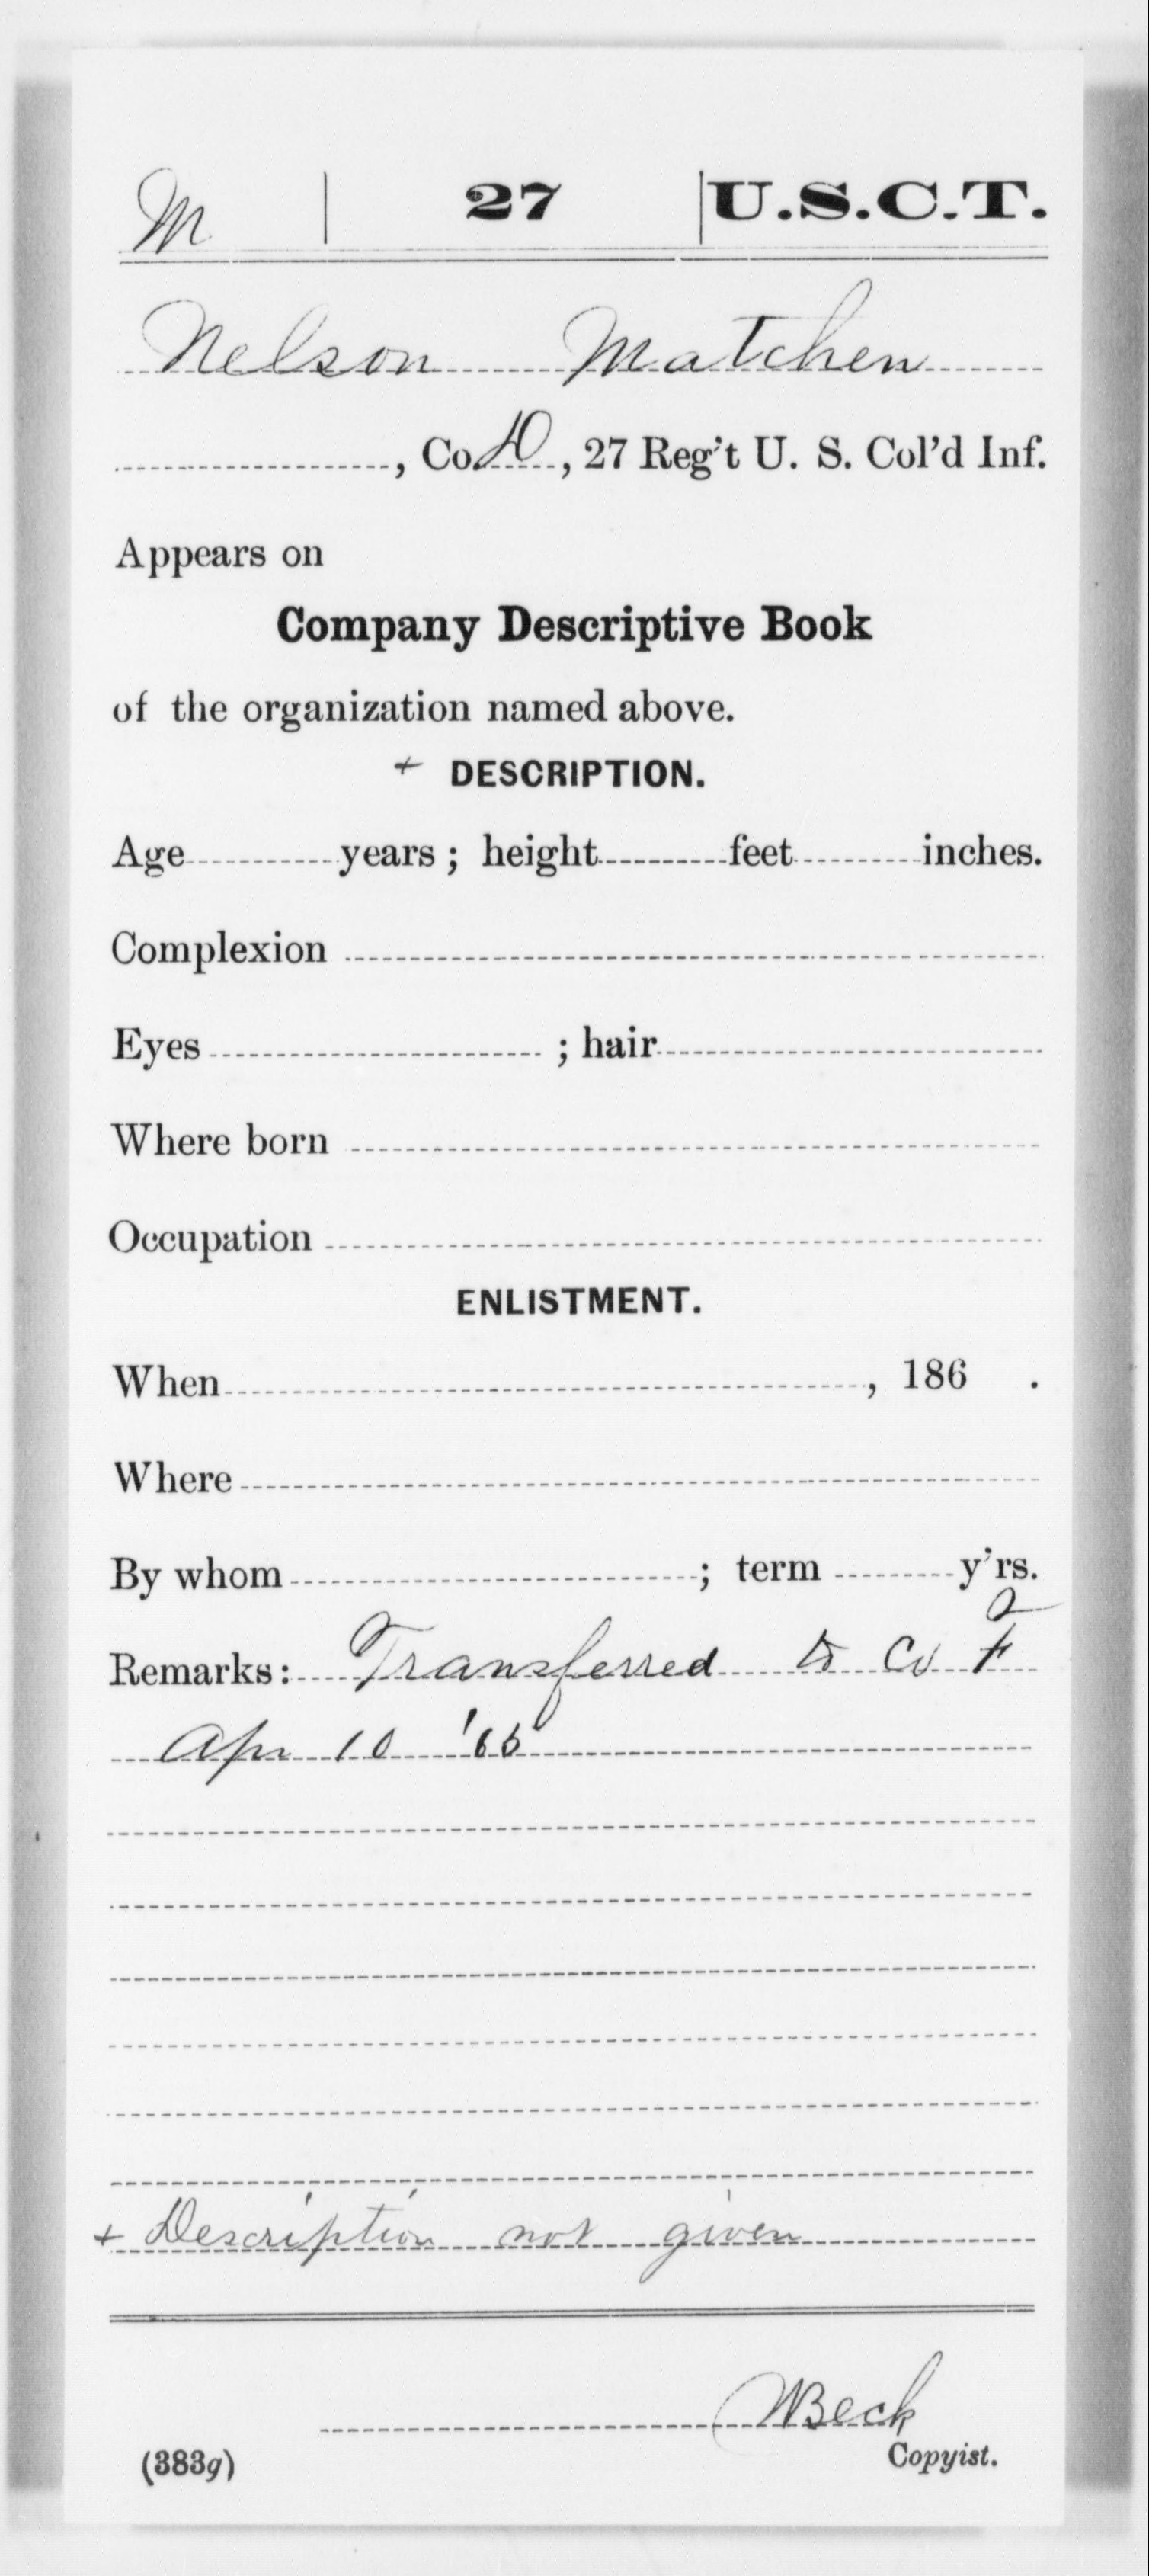 M | 27 | U.S.C.T.
Nelson Matchen
, Co. D, 27 Reg't U. S. Col'd Inf.
Appears on
Company Descriptive Book
of the organization named above.
+ DESCRIPTION.
Age years; height feet inches.
Complexion
Eyes ; hair
Where born
Occupation
ENLISTMENT.
When , 186 .
Where
By whom ; term y'rs.
Remarks: Transferred to Co F
Apr 10 '65
+ Description not given
Beck
Copyist.
(383g)